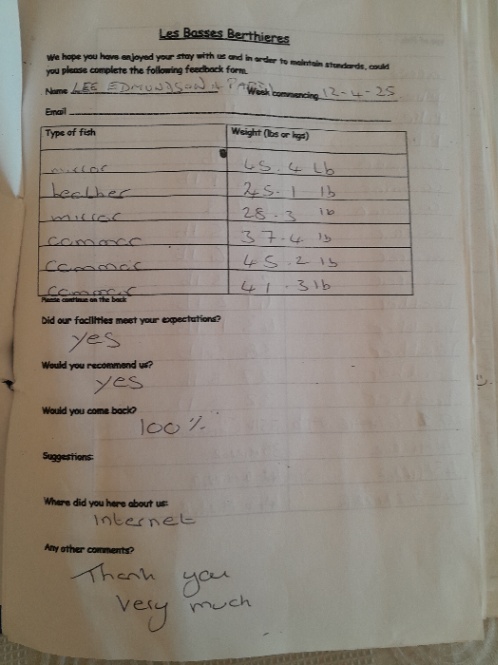 Les Bosses Berthieres
We hope you have enjoyed your stay with us and in order to maintain standards, could
you please complete the following feedback form.
Name LEE EDMUNDSON + PARTY Week commencing 12-4-25
Email
Type of fish Weight (lbs or kgs)
mirror 45.4 lb
leather 25.1 lb
mirror 28.3 lb
common 37.4 lb
common 45.2 lb
common 41.3 lb
Please continue on the back
Did our facilities meet your expectations?
yes
Would you recommend us?
yes
Would you come back?
100%
Suggestions:
Where did you here about us:
internet
Any other comments?
Thank you
very much